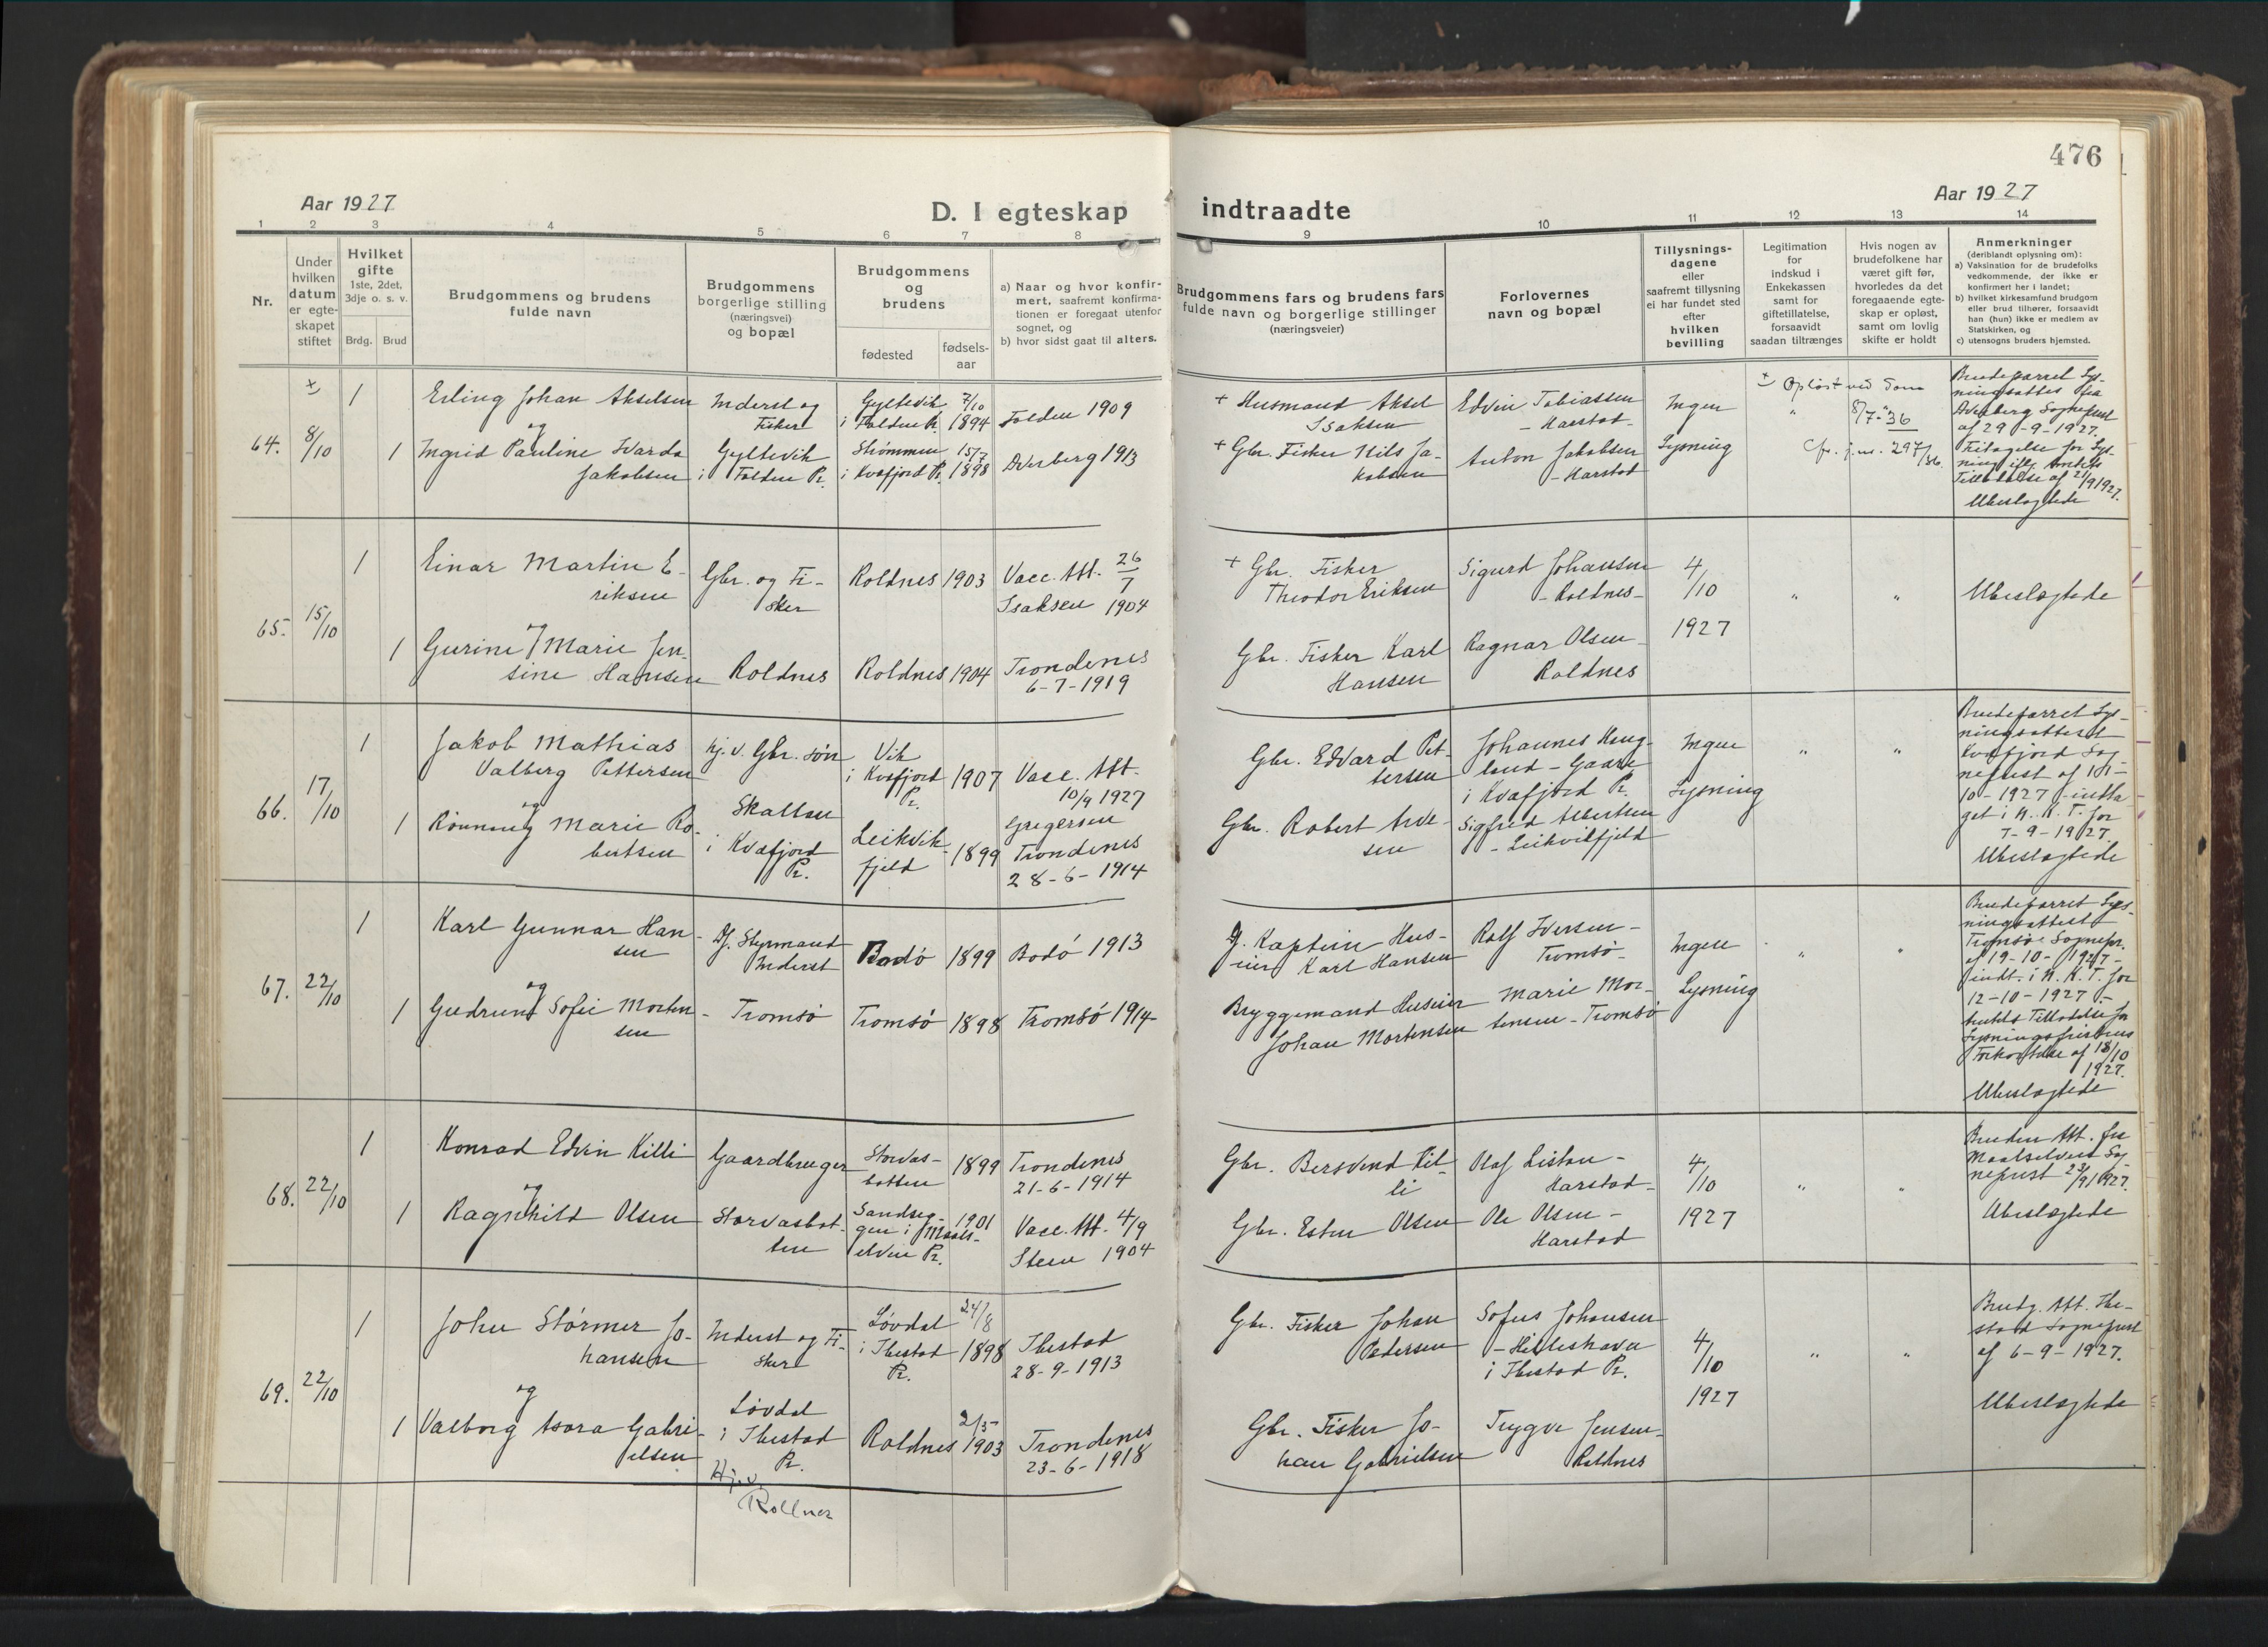 476
Aar 1927
Aar 1927
D. I egteskap indtraadte
1 2 3 4 5 6 7 8 9 10 11 12 13 14
Nr.
Under
hvilken
datum
er egte-
skapet
stiftet
Hvilket
gifte
1ste, 2det,
3dje o. s. v.
Brdg. Brud
Brudgommens og brudens
fulde navn
Brudgommens
borgerlige stilling
(næringsvei)
og bopæl
Brudgommens
og
brudens
fødested
fødsels-
aar
a) Naar og hvor konfir-
mert, saafremt konfirma-
tionen er foregaat utenfor
sognet, og
b) hvor sidst gaat til alters.
Brudgommens fars og brudens fars
fulde navn og borgerlige stillinger
(næringsveier)
Forlovernes
navn og bopæl
Tillysnings-
dagene
eller
saafremt tillysning
ei har fundet sted
efter
hvilken
bevilling
Legitimation
for
indskud i
Enkekassen
samt for
giftetillatelse,
forsaavidt
saadan tiltrænges
Hvis nogen av
brudefolkene har
været gift før,
hvorledes da det
foregaaende egte-
skap er opløst,
samt om lovlig
skifte er holdt
Anmerkninger
(deriblandt oplysning om):
a) Vaksination for de brudefolks
vedkommende, der ikke er
konfirmert her i landet;
b) hvilket kirkesamfund brudgom
eller brud tilhører, forsaavidt
han (hun) ikke er medlem av
Statskirken, og
c) utensogns bruders hjemsted.
64.
+
8/10
1
1
Erling Johan Akselsen
og
Ingrid Pauline Warda
Jakobsen
Inderst og
Fisker
Gyltevik
i Folden Pr.
Gyltevik
i Folden Pr.
Strømmen
i Kvæfjord Pr.
7/10
1894
15/7
1898
Folden 1909
Averberg 1913
+ Husmand Aksel
Isaksen
+ Gbr. Fisker Nils Ja-
kobsen
Edvin Tobiassen
- Harstad -
Anton Jakobsen
- Harstad
Ingen
Lysning
+ Opløst ved Dom
8/7-36
Cfr. j.nr. 297/36.
"
Brudeparret Lys-
ningsattes fra
Averberg Sogneprest
af 29-9-1927.
Fritagelse for Lys-
ning iflg. Amtets
Tilladelse af 21/9 1927.
Ubeslægtede
65.
15/10
1
1
Einar Martin E-
riksen
og
Gurine Marie Jen-
sine Hansen
Gbr. og Fi-
sker
Roldnes
Roldnes 1903
Roldnes 1904
Vacc. Att. 26/7
Isaksen 1904
Trondenes
6-7-1919
+ Gbr. Fisker
Theodor Eriksen
Gbr. Fisker Karl
Hansen
Sigurd Johansen
- Roldnes -
Ragnar Olsen
Roldnes
4/10
1927
" "
Ubeslægtede
66.
17/10
1
1
Jakob Mathias
Valberg Pettersen
og
Rønnaug Marie Ro-
bertsen
hj. v. Gbr. søn
Skallan
i Kvæfjord
Pr.
Vik
i Kvæfjord
Pr.
1907
Leikvik-
fjeld
1899
Vacc. Att.
10/9 1927
Gregersen
Trondenes
28-6-1914
Gbr. Edvard Pet-
tersen
Gbr. Robert Arve-
sen
Johannes Haug-
land - Gaare
i Kvæfjord Pr.
Sigfred Albertsen
- Leikvikfjeld
Ingen
Lysning
" "
Brudeparret Lys-
ningsattest
Kvæfjord Sog-
neprest af 14-
10-1927 - indta-
get i N. K. T. for
7-9-1927.
Ubeslægtede
67.
22/10
1
1
Karl Gunnar Han-
sen
og
Gudrund Sofie Morten-
sen
Df. Styrmand
Inderst
Tromsø
Bodø 1899
Tromsø 1898
Bodø 1913
Tromsø 1914
Df. Kaptein Hus-
eier Karl Hansen
Bryggemand Huseier
Johan Mortensen
Rolf Iversen -
Tromsø -
Marie Mor-
tensen - Tromsø
Ingen
Lysning
" "
Brudeparret Lys-
ningsattest
Tromsøe Sognepr.
af 19-10-1927 -
indt. i N. K. T. for
12-10-1927.-
Amtets Tilladelse for
Lysningsfristens
Forkortelse af 18/10
1927.
Ubeslægtede
68.
22/10
1
1
Konrad Edvin Killi
og
Ragnhild Olsen
Gaardbruger
Storvasbot-
ten
Storvas-
botten
1899
Sandseg-
gen i Maals-
elven Pr.
1901
Trondenes
21-6-1914
Vacc. Att. 4/9
Steen 1904
Gbr. Bersvend Kil-
li
Gbr. Esten Olsen
Olaf Listau -
Harstad -
Ole Olsen -
Harstad
4/10
1927
" "
Bruden Att. fra
Maalselvens Sog-
neprest 23/9 1927.
Ubeslægtede
69.
22/10
1
1
John Størmer Jo-
hansen
og
Valborg Asora Gabri-
elsen
Inderst og Fi-
sker
Løvdal
i Ibestad
Pr.
Hj.v.
Rollnes
Løvdal
i Ibestad
Pr.
24/8
1898
Roldnes
2/5
1903
Ibestad
28-9-1913
Trondenes
23-6-1918
Gbr. Fisker Johan
Pedersen
Gbr. Fisker Jo-
han Gabrielsen
Sofus Johansen
- Hilleshavn
i Ibestad Pr.
Trygve Jensen -
Roldnes
4/10
1927
" "
Brudg. Att. Ibe-
stad Sogneprest
af 6-9-1927.
Ubeslægtede